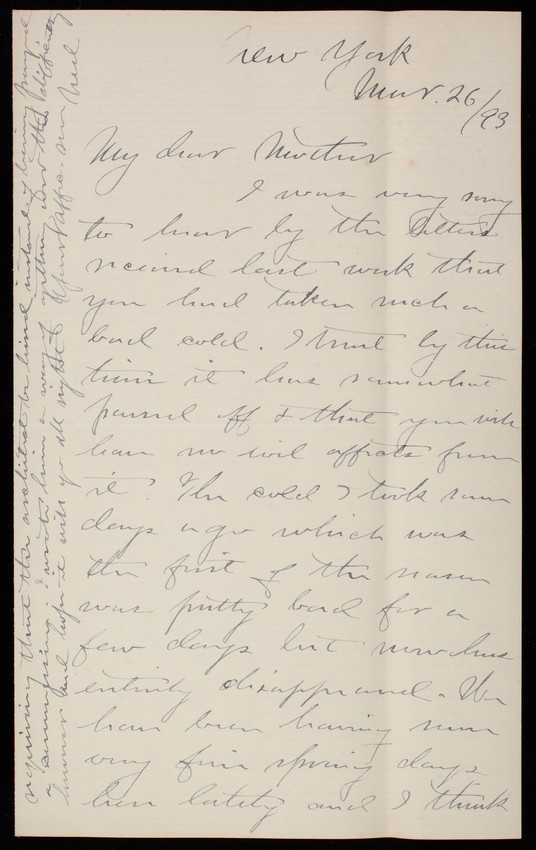 New York
Mar. 26/93
My dear Mother
I was very sorry
to hear by the letters
received last week that
you had taken such a
bad cold. I trust by this
time it has somewhat
passed off & that you will
have no evil affects from
it. The cold I took some
days ago which was
the first of the season
was pretty bad for a
few days but now has
entirely disappeared. We
have been having some
very fine spring days
here lately and I think
requiring that the architect be hired instead of being paid
a I wrote him a way of getting over this difficulty
and hope it will go all right.